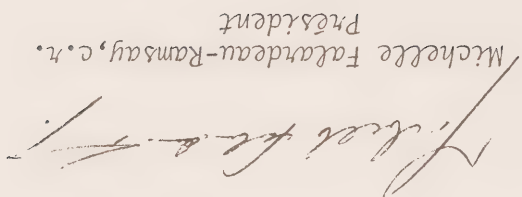 Michelle Falardeau-Ramsay, c.r.
Président